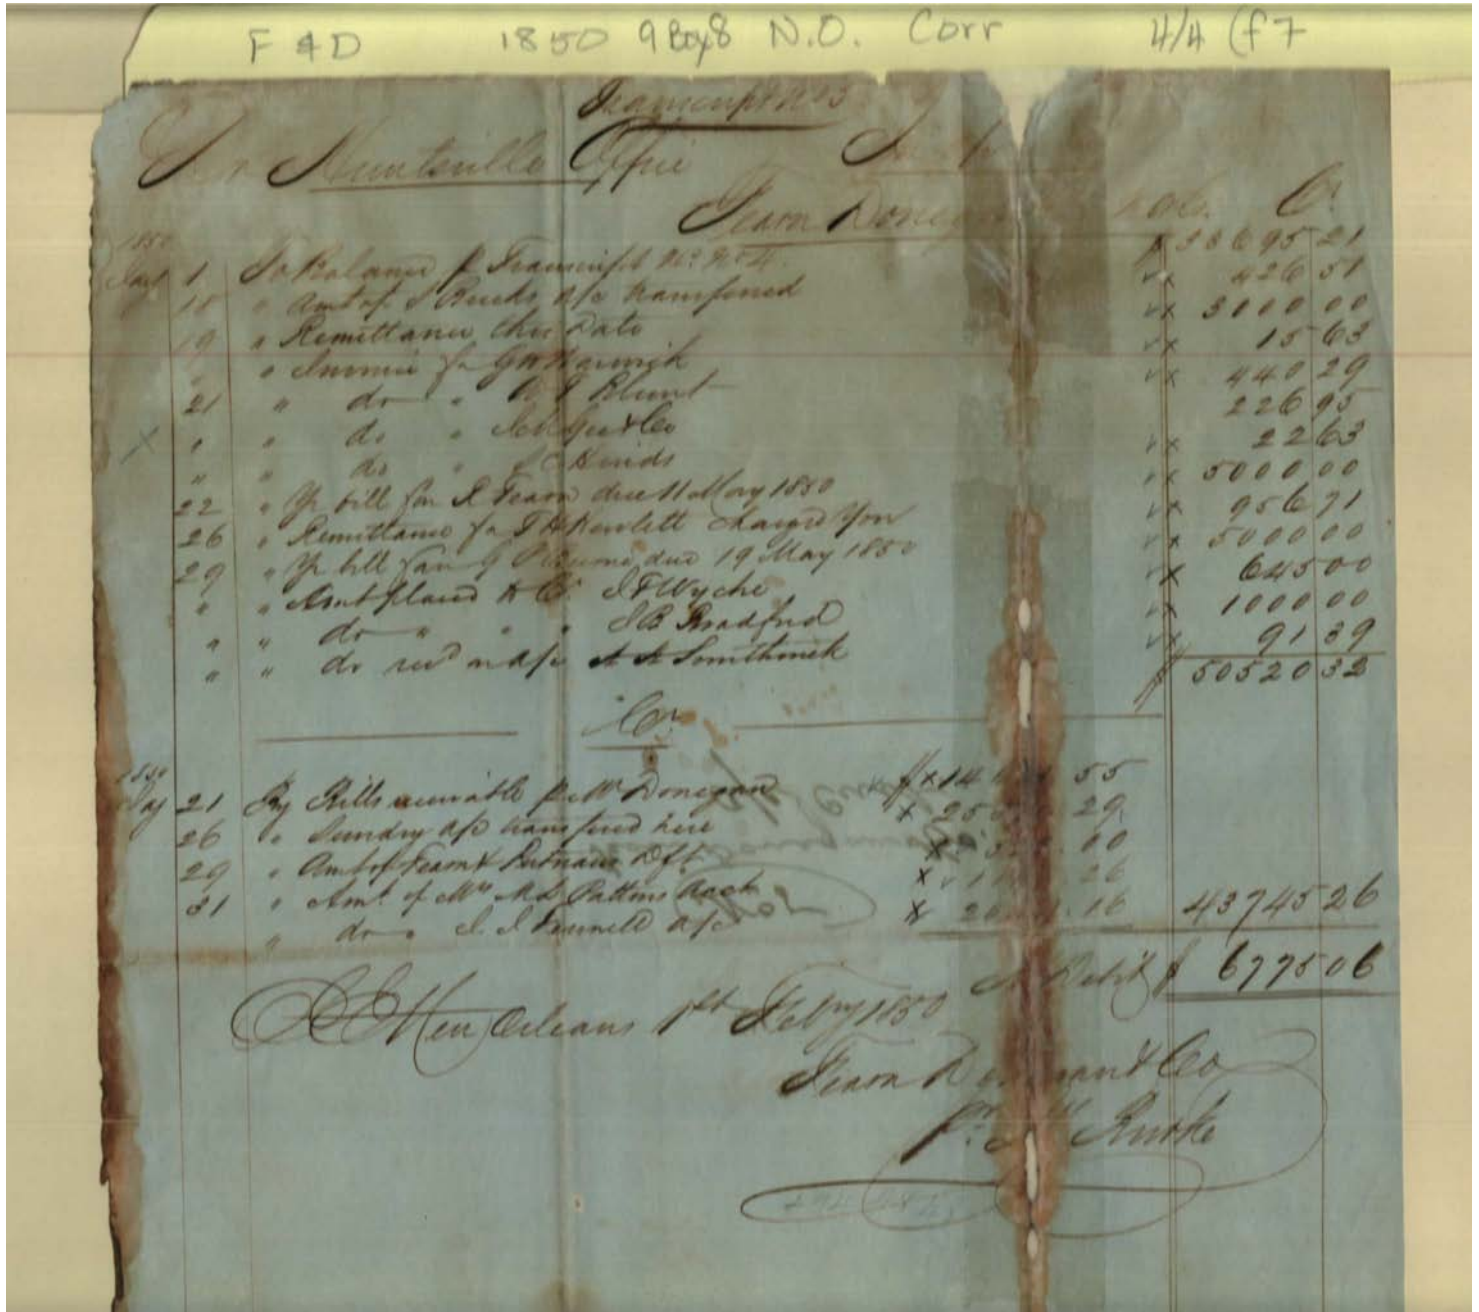 F & D 1850 9 Box 8 N.O. Corr 4/4 (f7
Transcript No 5
Dr Huntsville Office
Fearn Doneg Co. Cr
1850
Jany 1 To Balance p Transcript No. 4. $ 33695 21
18 " Amt of J Rucks a/c transferred 426 51
19 " Remittance this Date 3000 00
" " Invoice fr G W Warwick 15 63
21 " do " Blunt 440 29
" " do " & Co 226 95
" " do " Hinds 22 63
22 " Yr bill fav R Fearn due 11 May 1850 5000 00
26 " Remittance fr T H Hewlett charged You 956 71
29 " Yr bill fav G due 19 May 1850 5000 00
" " Amt placed to Cr J F Wyche 645 00
" " do " " " S B Bradford 1000 00
" " do recd on a/c 91 39
$ 50520 32
Cr
1850
Jany 21 By Bills receivable p Wm Donegan $ 14 55
26 " Sundry a/c transfered here 25 29
29 " Amt of Fearn & Putnam Dft 00
31 " Amt. of Mrs M L Pattons Acct 1 26
" do " J J Fennell a/c 20 .16 43745 26
Debit $ 6775 06
New Orleans 1st Feby 1850
Fearn Donegan & Co
pr Burke